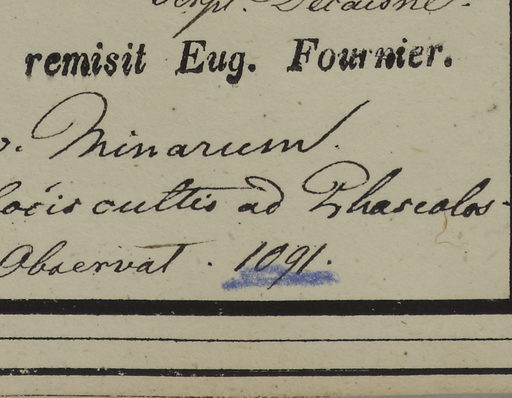 Script. Decaisne.
remisit Eug. Fournier.
v. Minarum.
locis cultis ad Phaseolos-
Observat. 1091.